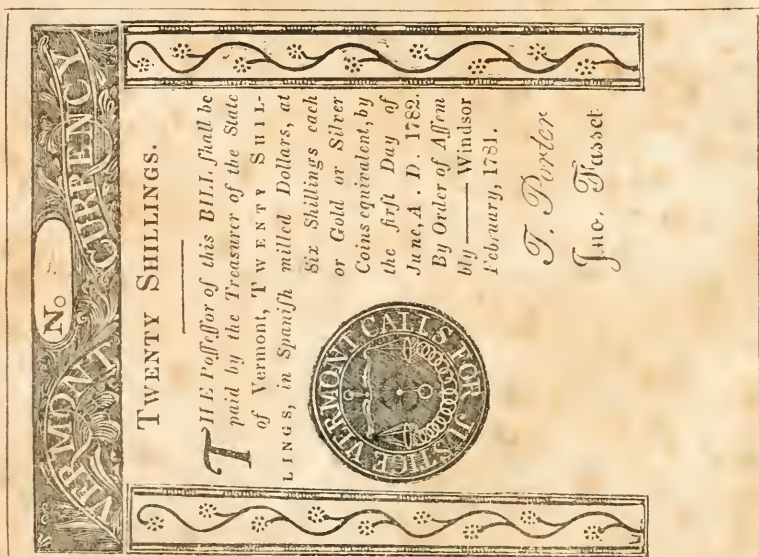 VERMONT CURRENCY
No
TWENTY SHILLINGS.
THE Poſſeſſor of this BILL ſhall be
paid by the Treasurer of the State
of Vermont, TWENTY SHIL-
LINGS, in Spaniſh milled Dollars, at
Six Shillings each
or Gold or Silver
Coins equivalent, by
the firſt Day of
June, A. D. 1782.
By Order of Aſſem
bly —— Windsor
February, 1781.
VERMONT CALLS FOR JUSTICE
T. Porter
Jno. Fasset